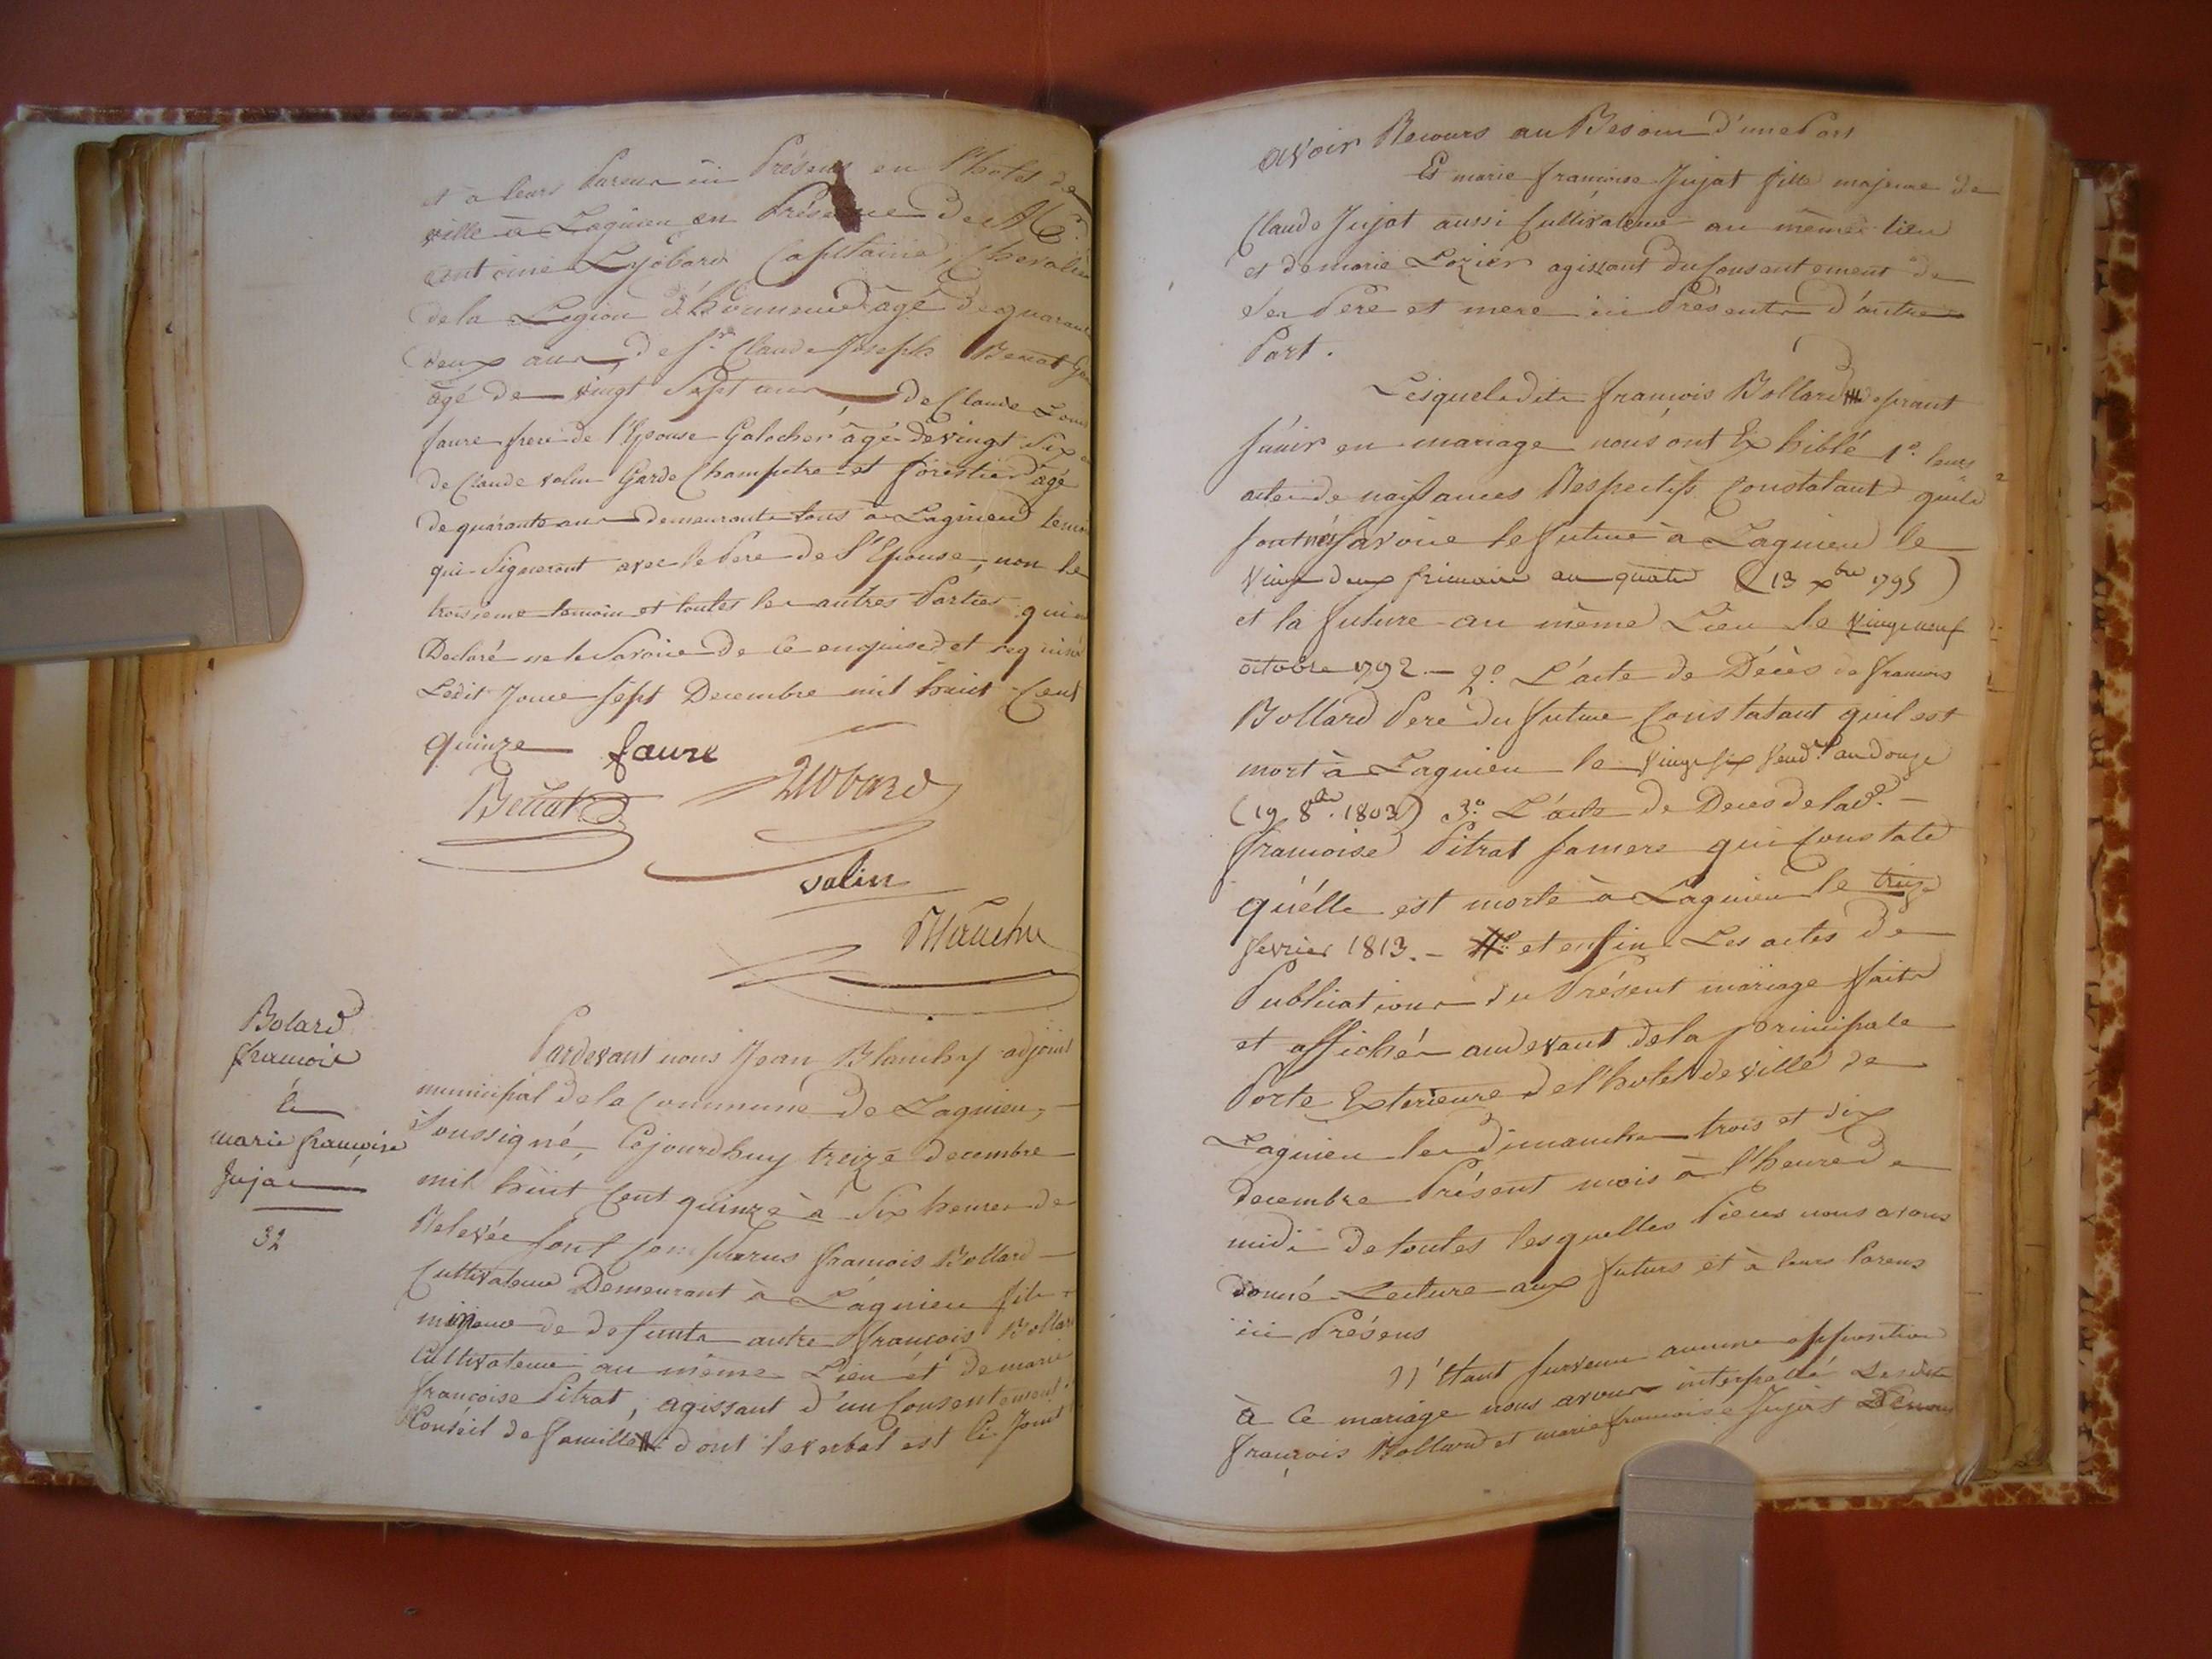 et à leurs Parens ici Présens en l'hotel de
ville à Lagnieu en Présence de
antoine Lyobard Capitaine, Chevalier
de la Légion d'honneur âgé de quarante
deux ans, de Sr. Claude Joseph Benat
âgé de vingt Sept ans de Claude Louis
faure frere de l'Epouse Galocher âgé de vingt Six
de Claude valin Garde Champetre et forestier âgé
de quarante ans demeurants tous à Lagnieu temoins
qui Signeront avec le Pere de l'Epouse, non le
troisieme temoin et toutes les autres Parties qui
Declaré ne le Savoir de ce enquised et requis
Ledit Jour Sept Decembre mil huit Cent
quinze faure
valin
Blanchy
Bolard
francois
à
marie françoise
Jujat
32
Pardevant nous Jean Blanchy adjoint
municipal de la Commune de Lagnieu,
Soussigné, Cejourdhuy treize decembre
mil huit Cent quinze à Six heures de
Relevée sont comparus francois Bollard
Cultivateur Demeurant à Lagnieu fils
mineur de defunts autre françois Bollard
Cultivateur au même Lieu et de marie
françoise Pitrat, agissant d'un Consentement
Conseil de famille dont le verbal est Ci Joint
avoir Recours au Besoin d'une Part
Et marie francoise Jujat fille majeure de
Claude Jujat aussi Cultivateur au même lieu
et de marie Lozier agissant du Consentement de
Ses Pere et mere ici Présents d'autre
Part.
Lesquels dits francois Bollard desirant
s'unir en mariage nous ont Exhibé 1o. leurs
actes de naissances Respectifs Constatant quils
sont nés savoir le futur à Lagnieu le
vingt deux frimaire an quatre (13 xbre 1795)
et la future au même Lieu le vingt neuf
octobre 1792. — 2o. L'acte de Décès de francois
Bollard Pere du futur Constatant quil est
mort à Lagnieu le vingt six vendre. an douze
(19 8bre. 1803) 3o. L'acte de Deces de lad. —
françoise Pitrat sa mere qui Constate
qu'elle est morte à Lagnieu le treize
fevrier 1813. — et enfin Les actes de
Publications du Présent mariage faits
et affichés audevant de la principale
Porte Exterieure de l'hotel de ville de
Lagnieu les dimanches trois et dix
decembre Présent mois à l'heure de
midi de toutes lesquelles Pieces nous avons
donné Lecture aux futurs et à leurs Parens
ici Présens
N'étant survenu aucune opposition
à Ce mariage nous avons interpellé Lesdits
françois Bollard et marie francoise Jujat De nous